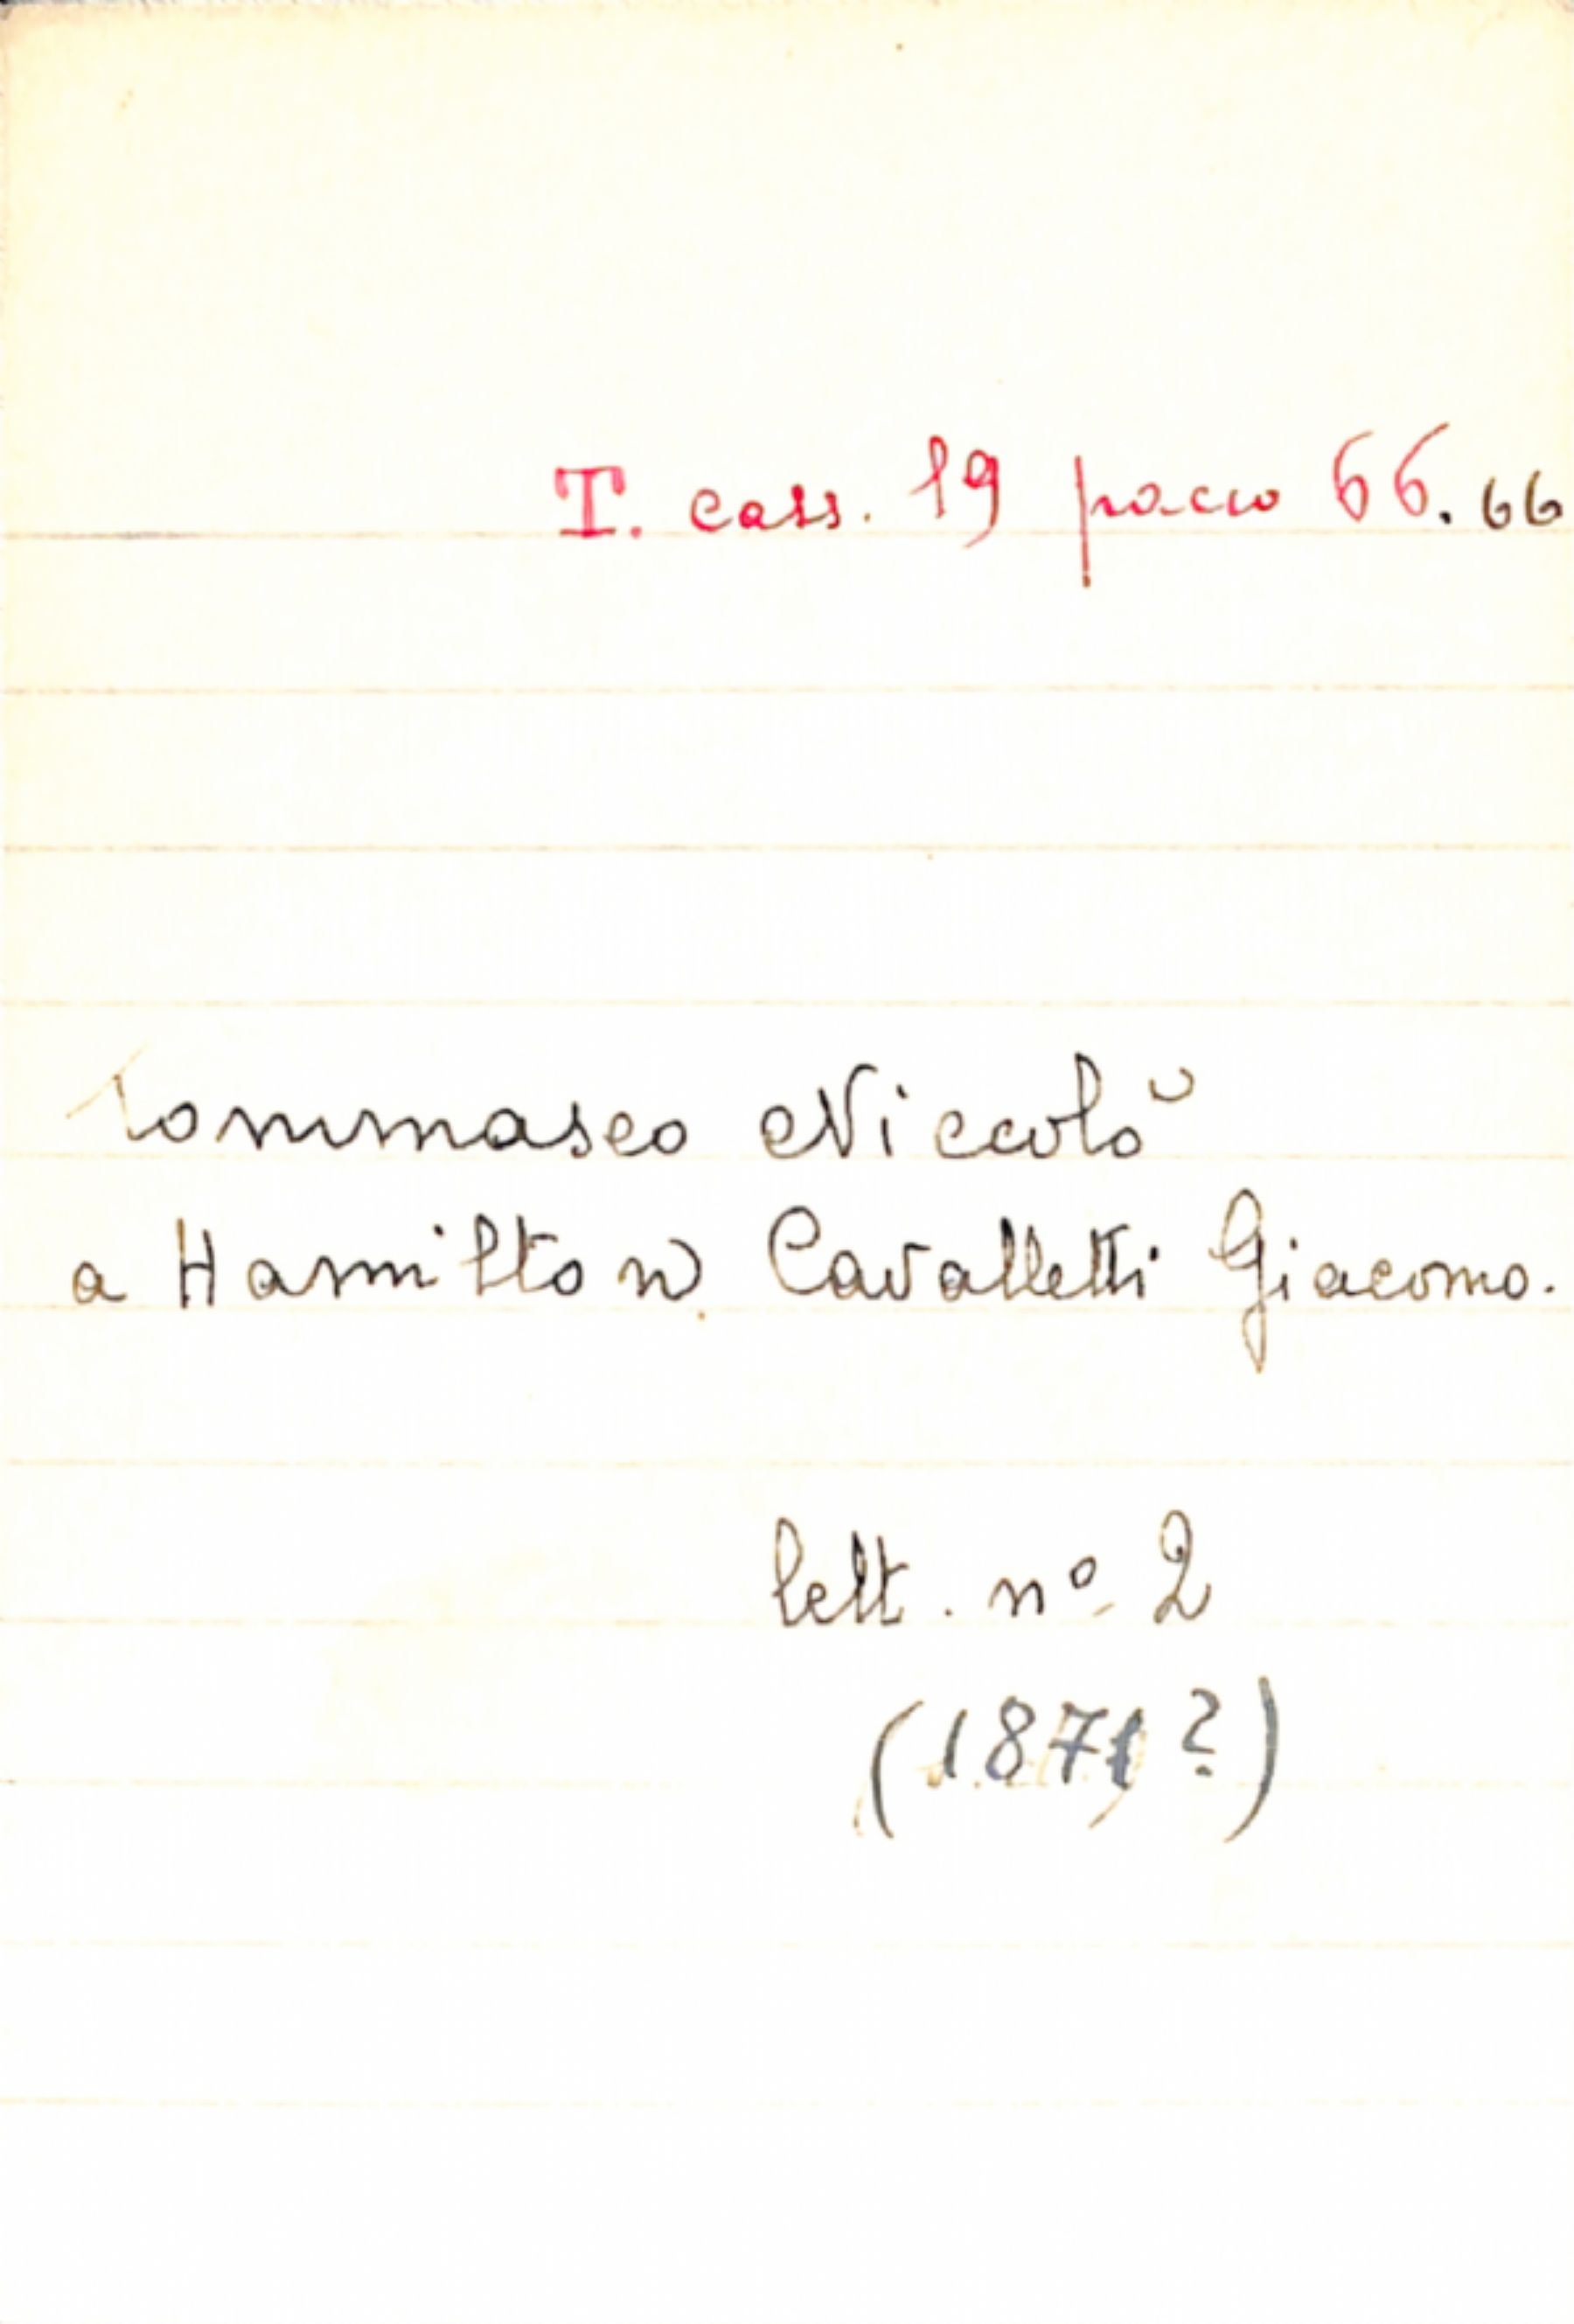 T. cass. 19 pacco 66. 66
Tommaseo Niccolò
a Hamilton Cavalletti Giacomo.
lett. nº 2
(1871?)